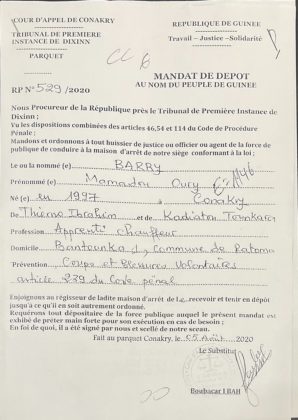 COUR D'APPEL DE CONAKRY
REPUBLIQUE DE GUINEE
TRIBUNAL DE PREMIERE
INSTANCE DE DIXINN
Travail – Justice – Solidarité
PARQUET
MANDAT DE DEPOT
RP N° 529 /2020
AU NOM DU PEUPLE DE GUINEE
Nous Procureur de la République près le Tribunal de Première Instance de
Dixinn ;
Vu les dispositions combinées des articles 46,54 et 114 du Code de Procédure
Pénale ;
Mandons et ordonnons à tout huissier de justice ou officier ou agent de la force
publique de conduire à la maison d'arrêt de notre siège conformément à la loi ;
Le ou la nommé (e) BARRY
Prénommé (e) Mamadou Oury
Né (e) en 1997 à Conakry
De Thierno Ibrahim et de Kadiatou Tounkara
Profession Apprenti chauffeur
Domicile Bantounka 1, Commune de Ratoma
Prévention Coups et Blessures Volontaires
article 239 du Code pénal
Enjoignons au régisseur de ladite maison d'arrêt de le recevoir et tenir en dépôt
jusqu'à ce qu'il en soit autrement ordonné.
Requérons tout dépositaire de la force publique auquel le présent mandat est
exhibé de prêter main forte pour son exécution en cas de besoin ;
En foi de quoi, il a été signé par nous et scellé de notre sceau.
Fait au parquet Conakry, le 05 Août 2020
Le Substitut
Boubacar I BAH